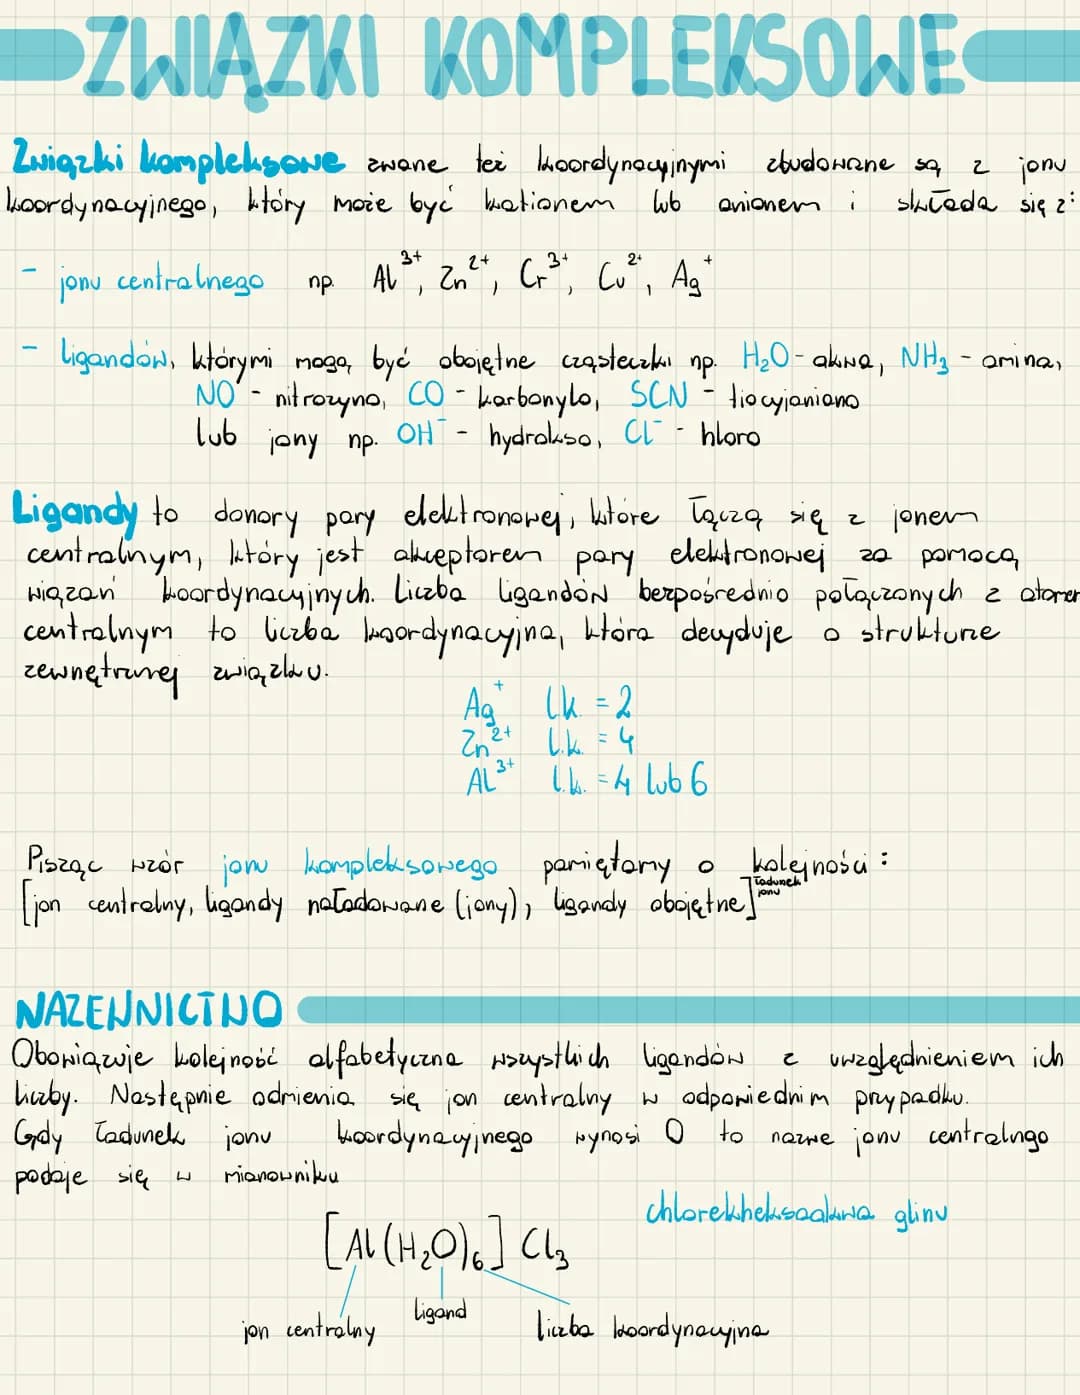 ZWIĄZKI KOMPLEKSOWE
Związki kompleksowe zwane też koordynacyjnymi zbudowane są z jonu
koordynacyjnego, który może być kationem lub anionem i składa się z:
- jonu centralnego np. Al³⁺, Zn²⁺, Cr³⁺, Cu²⁺, Ag⁺
- ligandów, którymi mogą być obojętne cząsteczki np. H₂O - akwa, NH₃ - amina,
NO - nitrozyno, CO - karbonylo, SCN - tiocyjaniano
lub jony np. OH⁻ - hydrokso, Cl⁻ - hloro
Ligandy to donory pary elektronowej, które łączą się z jonem
centralnym, który jest akceptorem pary elektronowej za pomocą
wiązań koordynacyjnych. Liczba ligandów bezpośrednio połączonych z atomem
centralnym to liczba koordynacyjna, która decyduje o strukturze
zewnętrznej związku.
Ag⁺ l.k. = 2
Zn²⁺ l.k. = 4
Al³⁺ l.k. = 4 lub 6
Pisząc wzór jonu kompleksowego pamiętamy o kolejności:
[jon centralny, ligandy naładowane (jony), ligandy obojętne] ładunek jonu
NAZEWNICTWO
Obowiązuje kolejność alfabetyczna wszystkich ligandów z uwzględnieniem ich
liczby. Następnie odmienia się jon centralny w odpowiednim przypadku.
Gdy ładunek jonu koordynacyjnego wynosi 0 to nazwe jonu centralngo
podaje się w mianowniku
chlorekheksaakwa glinu
[Al(H₂O)₆]Cl₃
jon centralny
ligand
liczba koordynacyjna